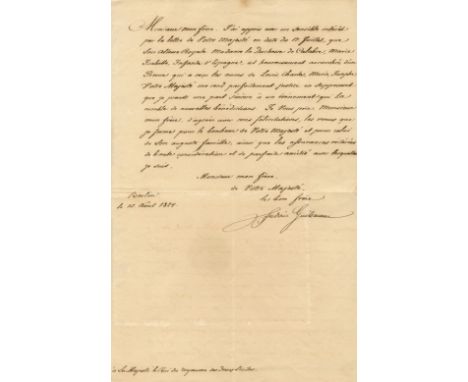 Monsieur mon frère. J'ai appris avec un sensible intérêt
par la lettre de Votre Majesté en date du 17 Juillet, que
Son Altesse Royale Madame la Duchesse de Calabre, Marie
Isabelle, Infante d'Espagne, est heureusement accouchée d'un
Prince qui a reçu les noms de Louis Charles Marie Joseph.
Votre Majesté me rend parfaitement justice en supposant
que je prends une part sincère à un évènement qui La
comble de nouvelles bénédictions. Je Vous prie Monsieur
mon frère, d'agréer avec mes félicitations, les voeux que
je forme pour le bonheur de Votre Majesté et pour celui
de Son auguste famille, ainsi que les assurances réitérées
de haute considération et de parfaite amitié avec lesquelles
je suis,
Monsieur mon frère,
de Votre Majesté,
le bon frère
Berlin
le 10 Août
Frédéric Guillaume
à Sa Majesté le Roi du royaume des Deux Siciles.